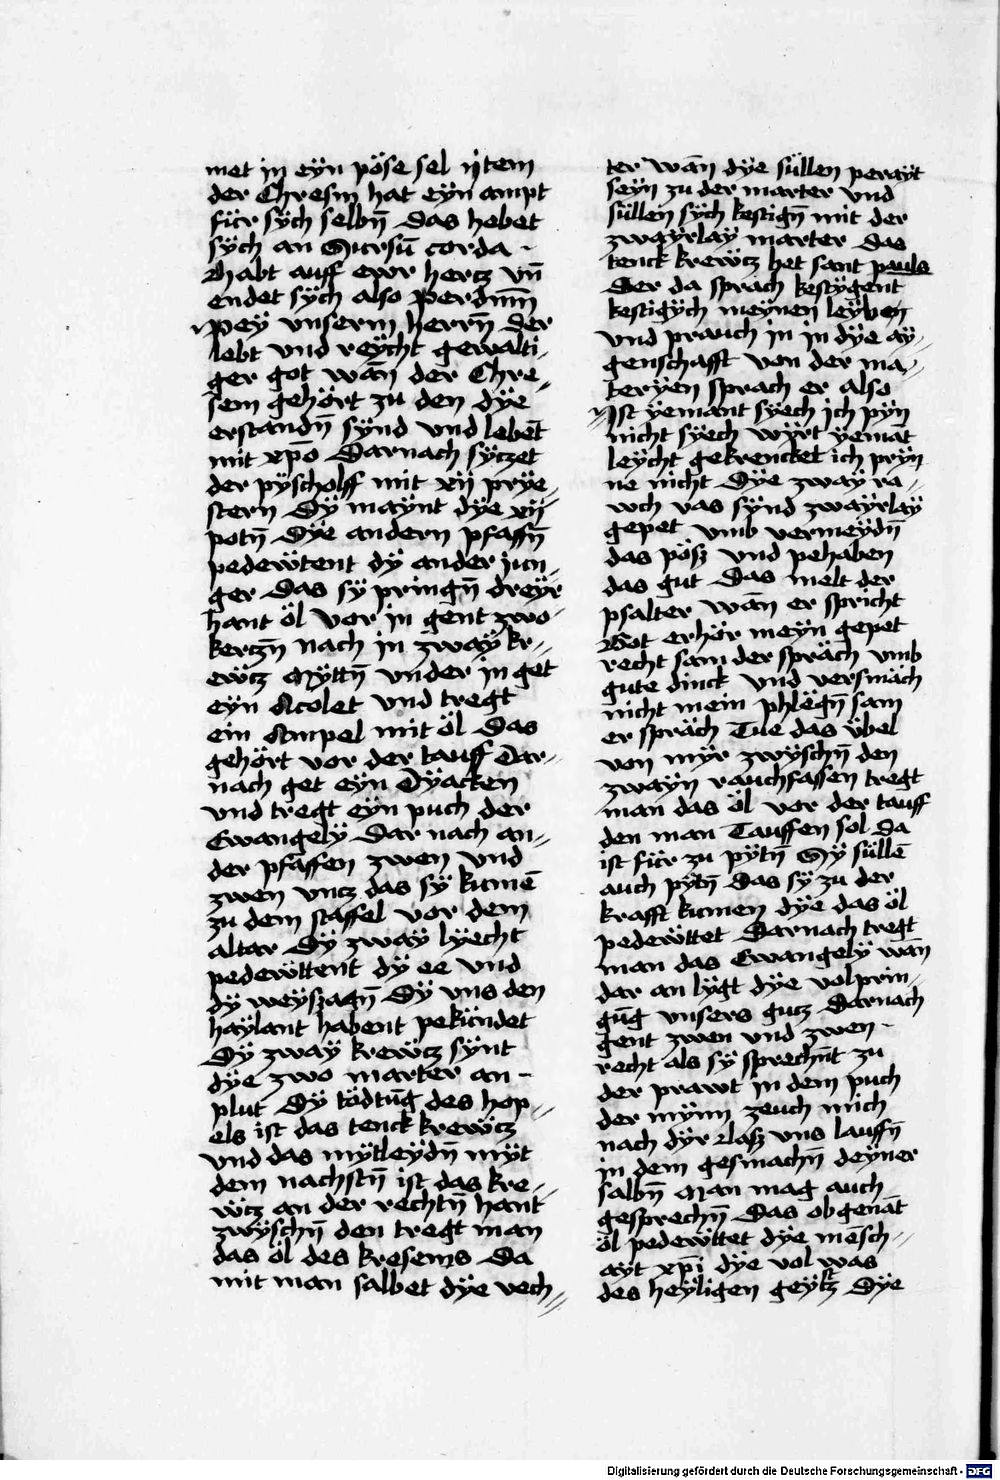 met in eÿn pöse sel ÿtem
der Chresm hat eÿn ampt
für sÿch selbn̄ Das hebet
sÿch an Sursū corda -
Habt auff ewr hertz vn̄
endet sÿch also Perdm̄n̄
Peÿ vnserm herrn̄ der
lebt vnd reÿcht gewalti⸗
ger got wān der Chre⸗
sem gehört zu den dÿe
erstandn̄ sÿnd vnd lebēt
mit xp̄o Darnach sÿtzet
der pÿscholff mit xij prÿe⸗
stern Dÿ maÿnt dÿe xij
potn̄ Dÿe andern pfaffn̄
pedewtent dÿ ander jun⸗
ger Das sÿ pringn̄ dreÿr
hant öl vor in gent zwo⸗
kertzn̄ nach in zwaÿ kr⸗
ewtz Mÿttn̄ vnder in get
eÿn Acolet vnd tregt
ein Ampel mit öl Das
gehört vor der tauff Dar⸗
nach get eÿn Dÿacken
vnd tregt eÿn puch der
Ewangelÿ Dar nach an⸗
der pfaffen zwen vnd
zwen vntz das sÿ kumē
zu dem staffel vor dem
altar Dÿ zwaÿ lÿecht
pedewttent dÿ ee vnd
dÿ weÿszagn̄ Dÿ vns den
haÿlant habent pekündet
Dÿ zwaÿ krewtz sÿnt
dÿe zwo marter an -
plut Dÿ tödtūg des hop⸗
els ist das tenck krewtz
vnd das mÿtleÿdn̄ mÿt
dem nachstn̄ ist das kre⸗
wtz an der rechtn̄ hant
zwÿschn̄ den tregt man
das öl des kresems Da
mit man salbet dÿe vech⸗
ter wān dÿe süllen peraÿt
seÿn zu der marter vnd
süllen sÿch kestign̄ mit der
zwaÿrlaÿ marter Das
tenck krewtz het sant pauls
Der da sprach kestÿgent
kestigÿch meÿnen leÿben
vnd prauch in in dÿe aÿ⸗
genschafft von der ma⸗
terÿen sprach er also
Ist ÿemant sÿech ich pÿn
nicht sÿech wÿrt ÿemāt
leÿcht gekrencket ich prÿn
ne nicht Dÿe zwaÿ ra⸗
wch vas sÿnd zwaÿrlaÿ
gepet vmb vermeÿdn̄
das pösz vnd pehaben
das gut Das melt der
psalter wān er spricht
Got erhör meÿn gepet
recht sam der spräch vmb
gute dinck vnd versmäch
nicht mein phlëgn̄ sam
er spräch Tue das übel
von mÿr zwÿschn̄ den
zwaÿn rauchfassen tregt
man das öl vor der tauff
den man Tauffen sol da
ist für zu pÿtn̄ Sÿ süllē
auch pÿtn̄ Das sÿ zu der
krafft kumen dÿe das öl
pedewttet Darnach tregt
man das Ewangelÿ wān
dar an lÿgt dÿe volprin⸗
gūg vnsers gutz Darnach
gent zwen vnd zwen -
recht als sÿ sprechn̄t zu
der prawt in dem puch
der mÿnn zeuch mich
nach dÿr Lasz vns lauffn̄
in dem gesmachn̄ deÿner
salbn̄ Man mag auch
gesprechn̄ Das ob genāt
öl pedewttet dÿe mēsch⸗
aÿt xp̄i dÿe vol was
des heÿligen geÿstz Dÿe
Digitalisierung gefördert durch die Deutsche Forschungsgemeinschaft - DFG